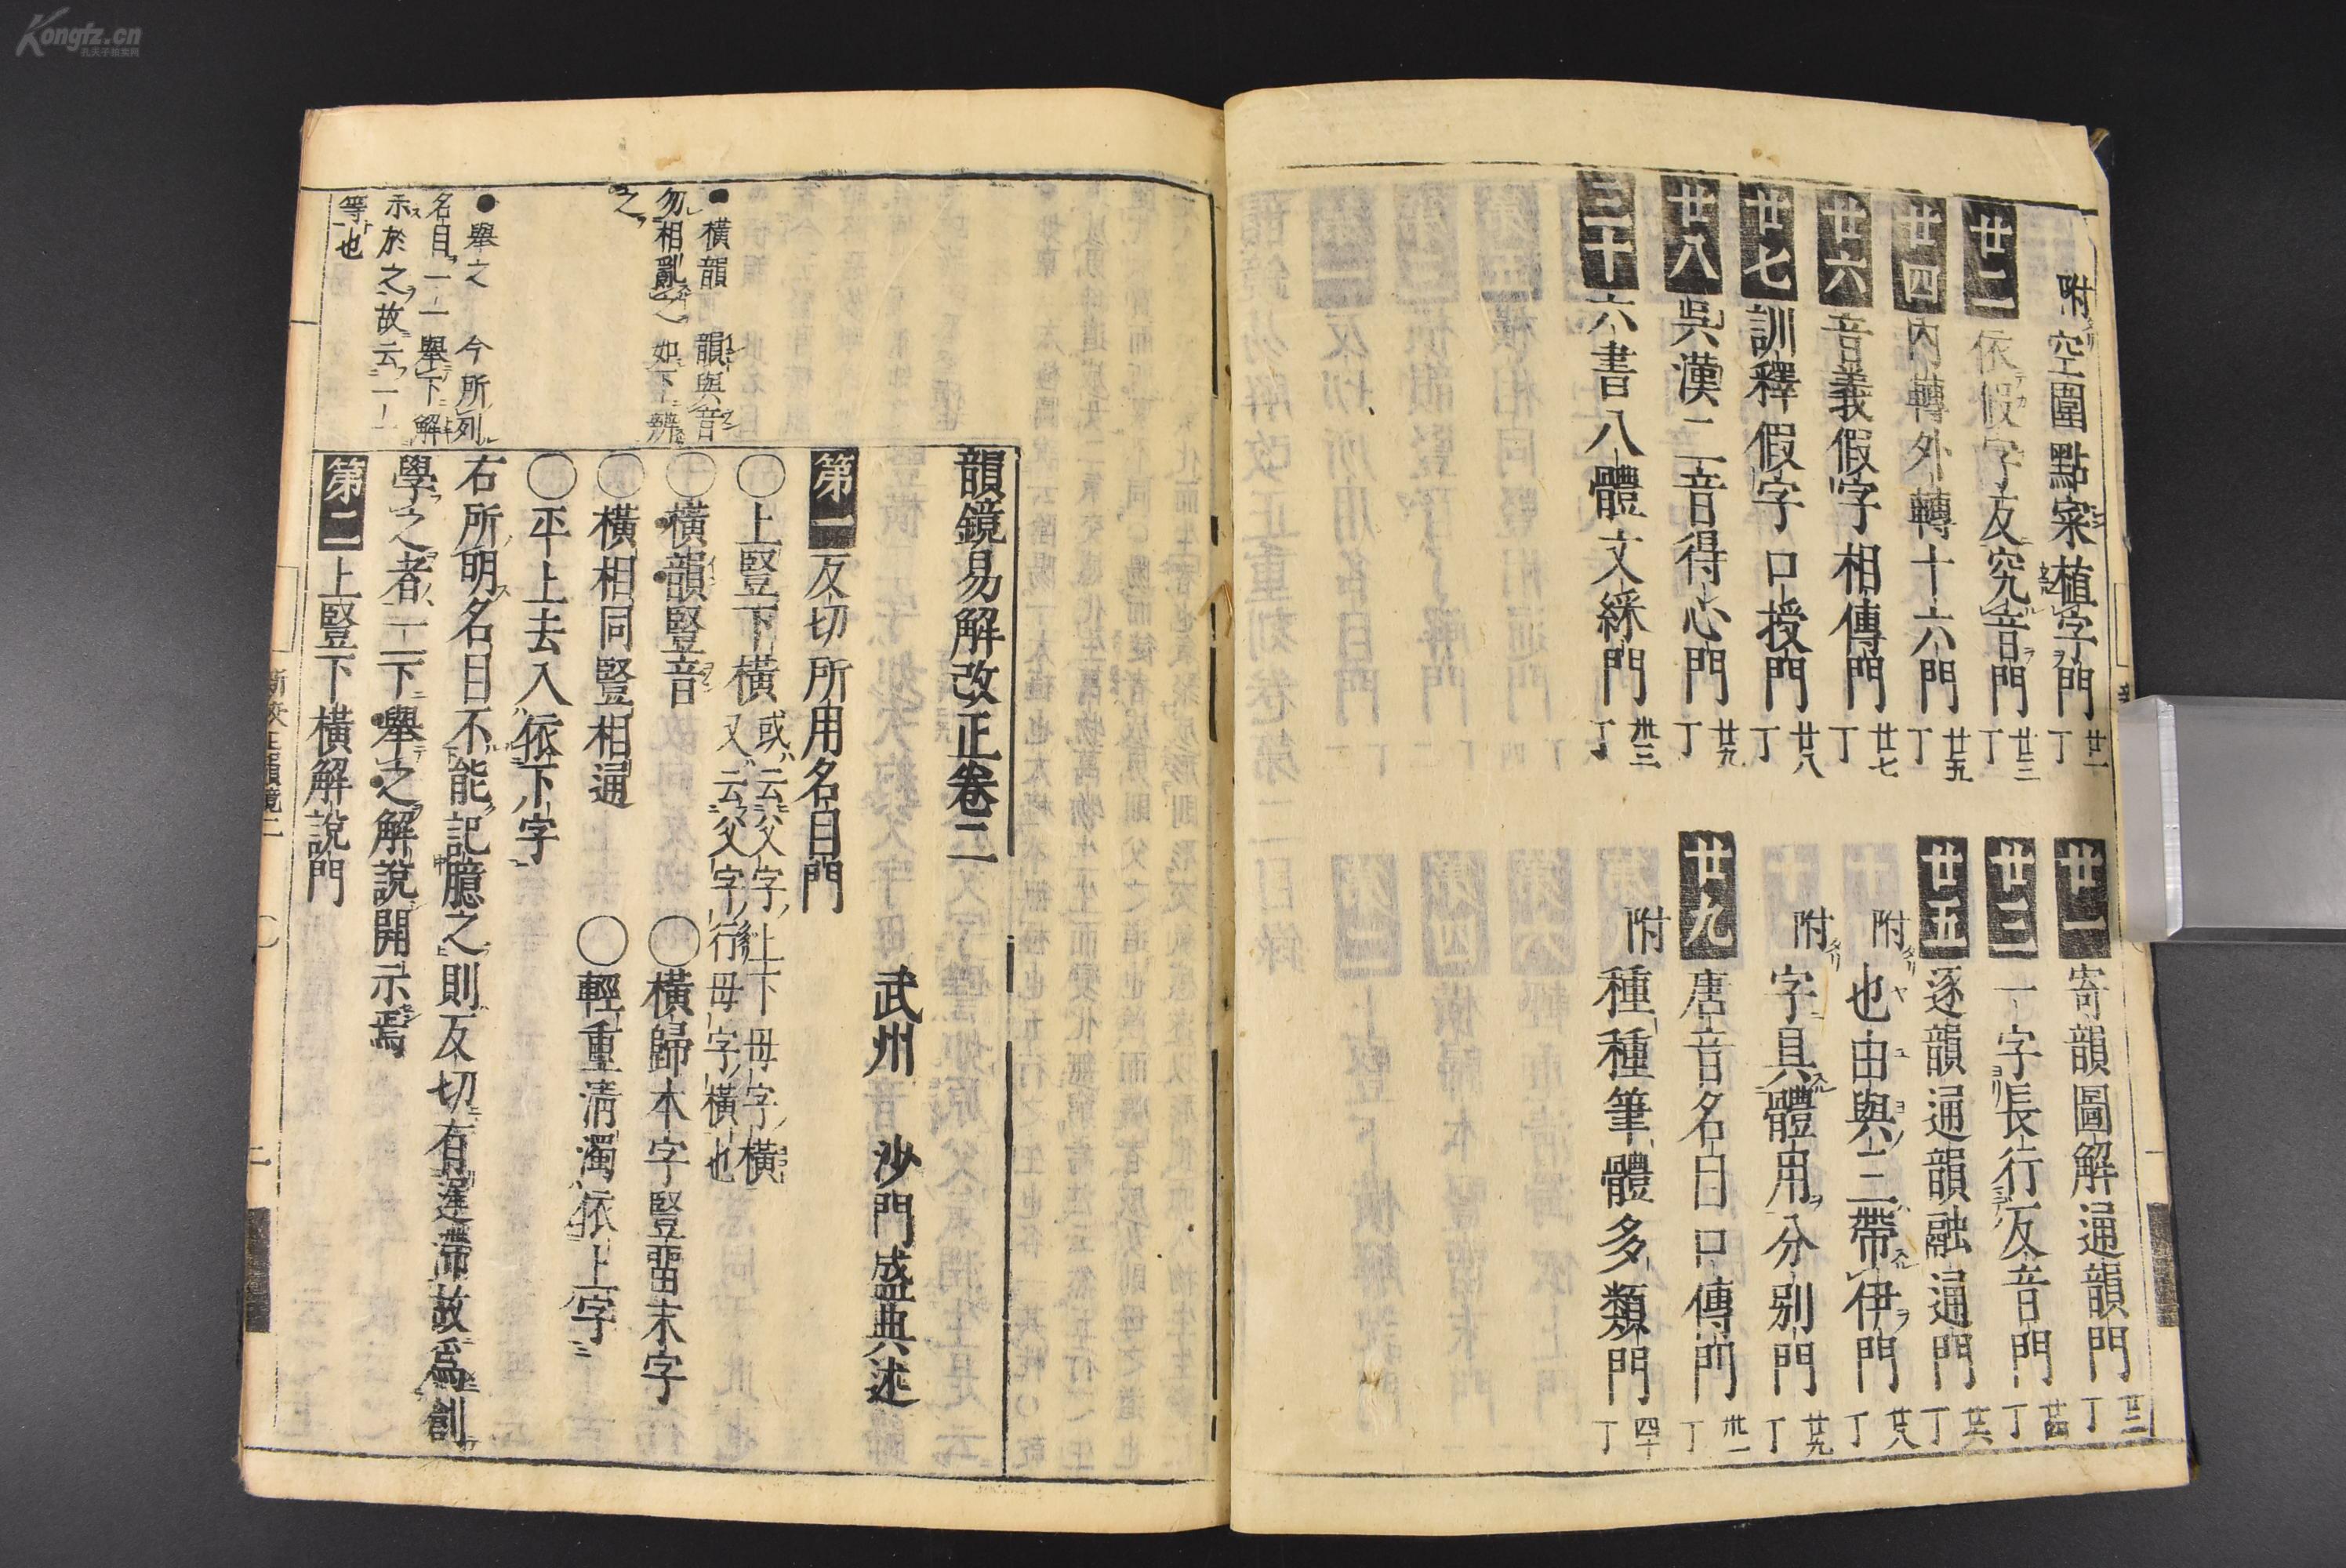 Kongfz.cn
孔夫子拍卖网
附空圍點寀植字門 廿一丁
廿二 依假字反究音門 廿三丁
廿四 內轉外轉十六門 廿五丁
廿六 音義假字相傳門 廿七丁
廿七 訓釋假字口授門 廿八丁
廿八 吳漢二音得心門 廿九丁
三十 六書八體文綵門 卅三丁
廿一 寄韻圖解通韻門 廿二丁
廿三 一字長行反音門 廿四丁
廿五 逐韻通韻融通門 廿六丁
附 也由與三帶伊門 廿八丁
附 字具體用分別門 廿九丁
廿九 唐音名目口傳門 卅一丁
附 種種筆體多類門 四十丁
韻鏡易解改正卷二
武州 沙門盛典述
第一 反切所用名目門
○上豎下橫 或云父字上下母字橫
又云父字行母字橫也
○橫韻豎音 ○橫歸本字豎畱末字
○橫相同豎相通 ○輕重清濁依上字
○平上去入依下字
右所明名目不能記臆之則反切有遲滯故爲創
學之者一一下舉之解說開示焉
第二 上豎下橫解說門
●橫韻 韻與音
勿相亂 如下辨
之
●舉之 今所列
名目一一舉下解
示於之故云一一
等也